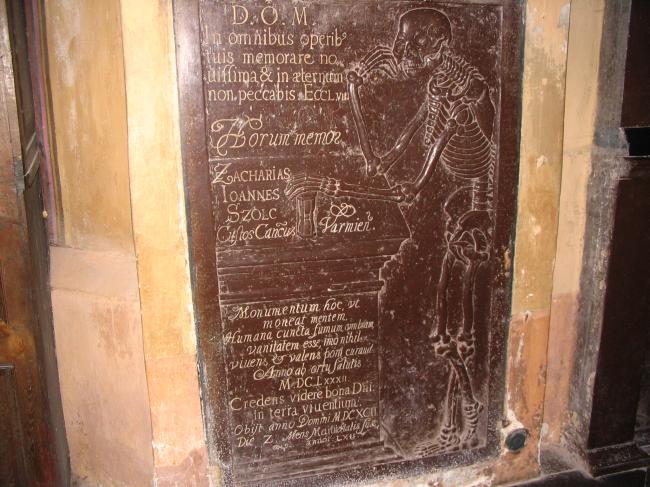 D. O. M.
In omnibus operib9
tuis memorare no,
uissima & in æternum
non peccabis. Eccl. VII
Horum memor
ZACHARIAS
IOANNES
SZOLC
Custos Cancus & Varmien
Monumentum hoc, ut
moneat mentem,
Humana cuncta fumum, umbram,
vanitatem esse, imo nihil,
vivens, & valens poni curavit
Anno ab ortu salutis
M.DC.LXXXII.
Credens videre bona Dñi
in terra viventium.
Obijt anno Domini MDCXCII
Die 7. Mens Maii ætatis suæ
anno LXI